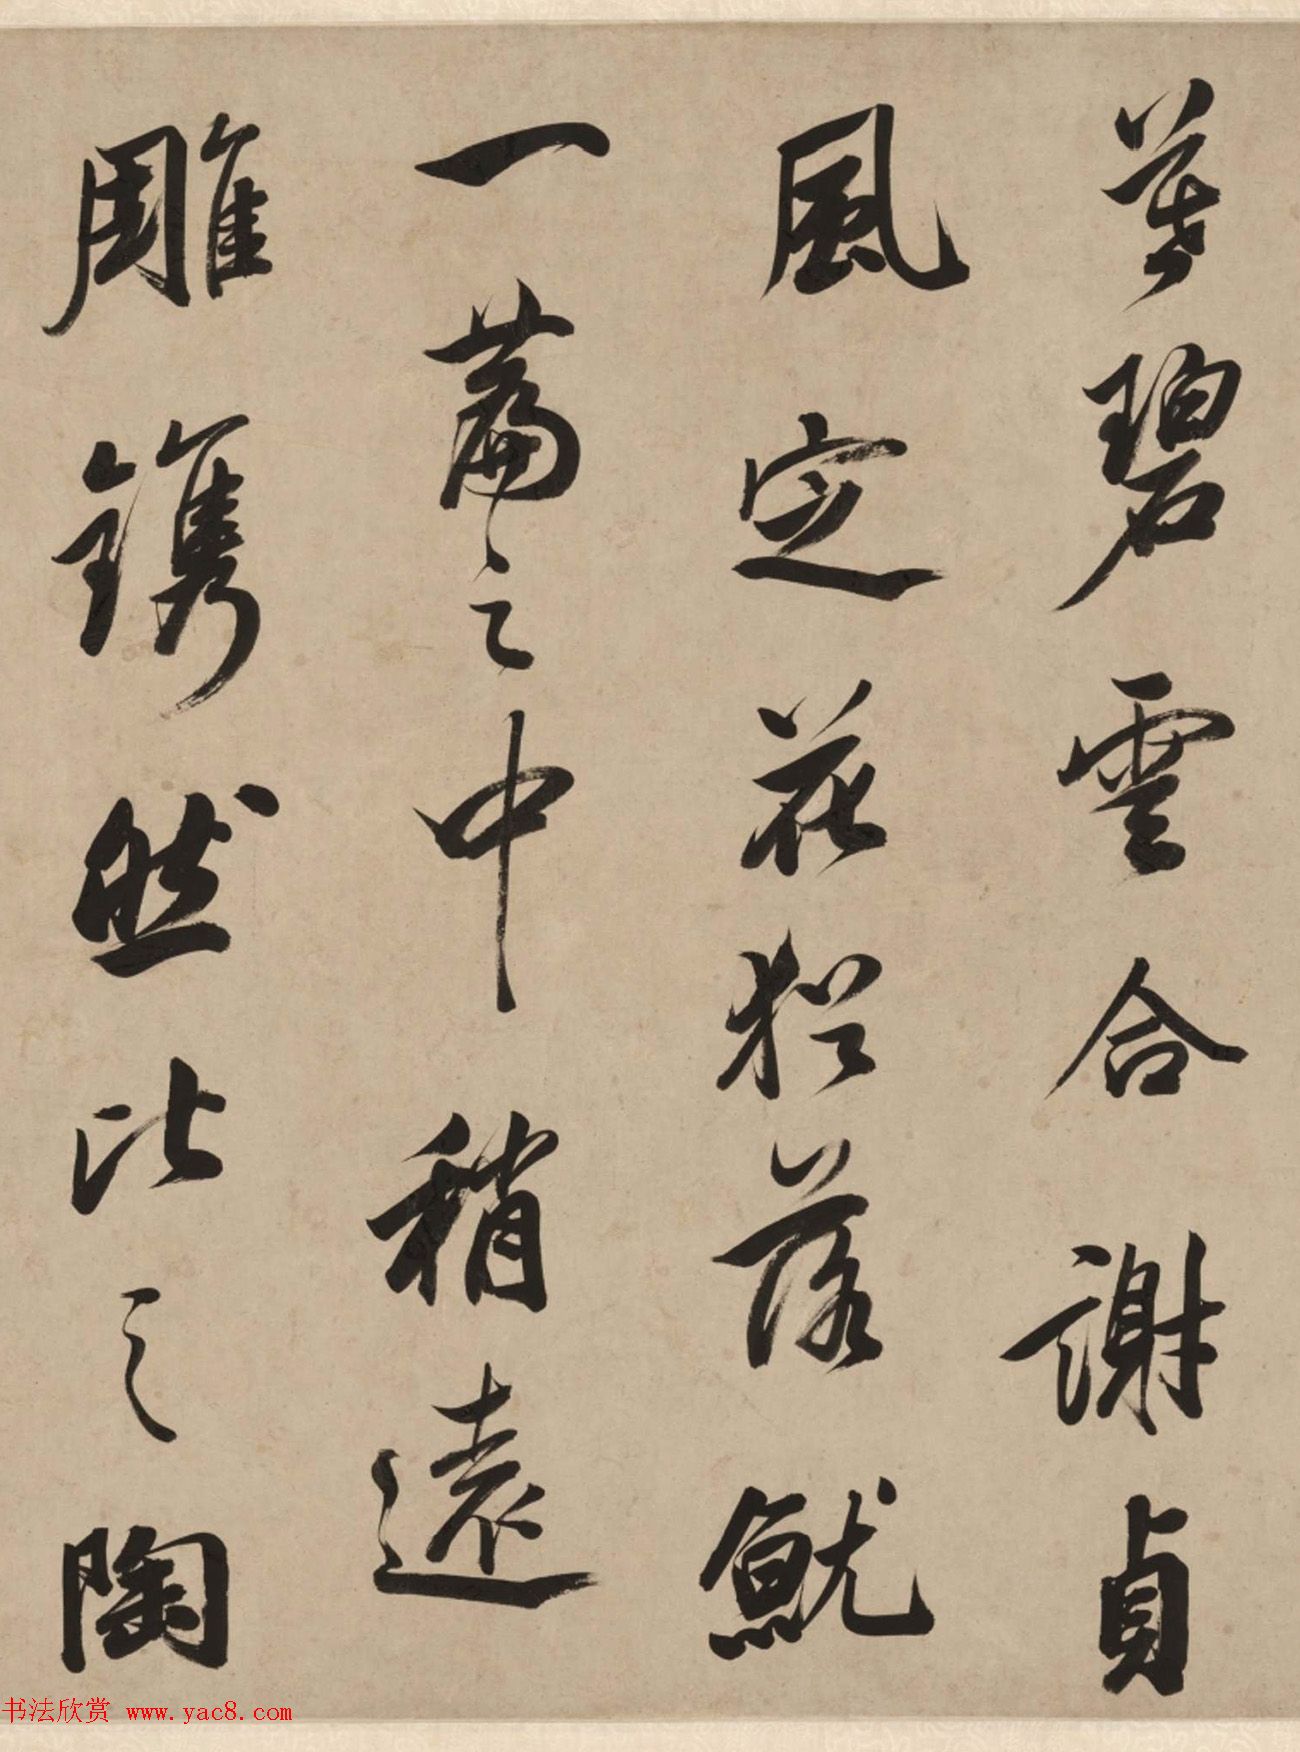 暮碧雲合謝貞
風定花猶落魷
一篇之中稍遠
雕鐫然比之陶
书法欣赏 www.yac8.com